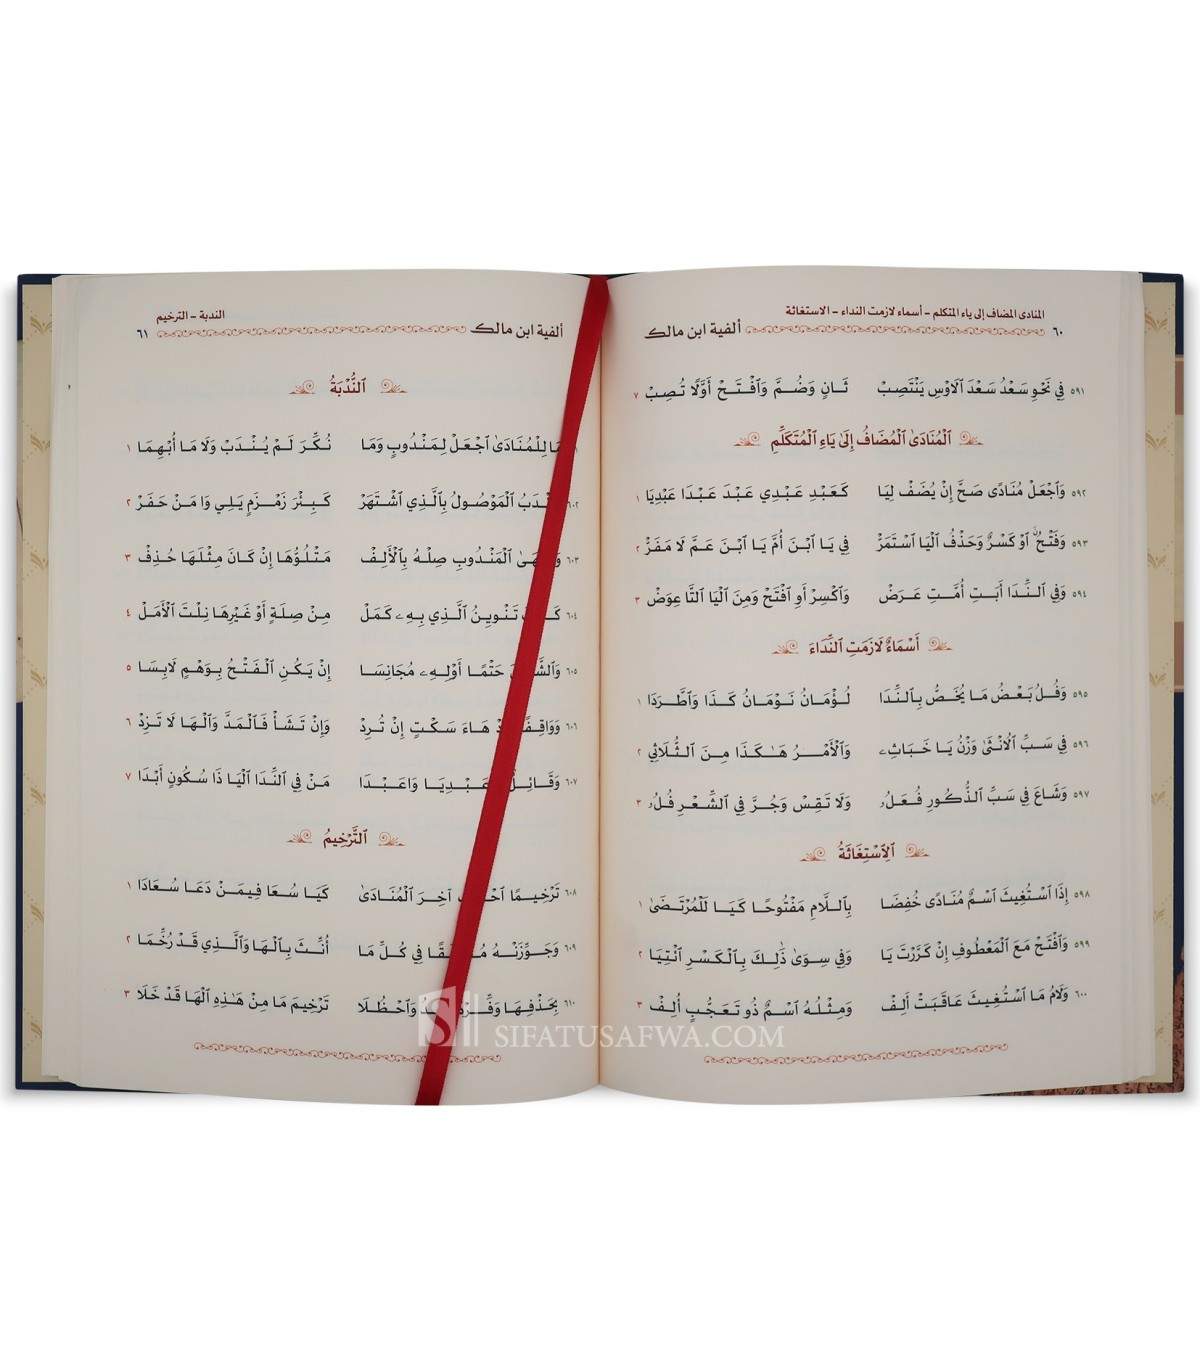 المنادى المضاف إلى ياء المتكلم - أسماء لازمت النداء - الاستغاثة
٦٠ ألفية ابن مالك
٥٩١ فِي نَحْوِ سَعْدُ سَعْدَ الَاوْسِ يَنْتَصِبْ ثَـانٍ وَضُـمَّ وَٱفْتَـحْ أَوَّلًا تُـصِبْ ٧
ٱلْمُنَادَىٰ ٱلْمُضَافُ إِلَىٰ يَاءِ ٱلْمُتَكَلِّمِ
٥٩٢ وَٱجْعَلْ مُنَادًى صَحَّ إِنْ يُضَفْ لِيَا كَعَبْدِ عَبْدِي عَبْدَ عَبْدَا عَبْدِيَا ١
٥٩٣ وَفَتْحٌ ٱوْ كَسْرٌ وَحَذْفُ ٱلْيَا ٱسْتَمَرّْ فِي يَا ٱبْنَ أُمَّ يَا ٱبْنَ عَمَّ لَا مَفَرّْ ٢
٥٩٤ وَفِي ٱلـنِّدَا أَبَتِ أُمَّتِ عَـرَضْ وَٱكْسِرْ أَوِ ٱفْتَحْ وَمِنَ ٱلْيَا ٱلتَّا عِوَضْ ٣
أَسْمَاءٌ لَازَمَتِ ٱلنِّدَاءَ
٥٩٥ وَفُـلُ بَعْـضُ مَا يُخَصُّ بِـٱلنِّدَا لُـؤْمَانُ نَـوْمَانُ كَـذَا وَٱطَّـرَدَا ١
٥٩٦ فِي سَبِّ ٱلُانْثَىٰ وَزْنُ يَـا خَبَـاثِ وَٱلْأَمْـرُ هَـٰكَذَا مِنَ ٱلـثُّلَاثِي ٢
٥٩٧ وَشَاعَ فِي سَبِّ ٱلذُّكُورِ فُـعَـلُ وَلَا تَـقِسْ وَجُـرَّ فِي ٱلشِّعْرِ فُـلُ ٣
ٱلِٱسْتِغَاثَةُ
٥٩٨ إِذَا ٱسْتُغِيثَ ٱسْمٌ مُنَادًى خُفِضَا بِـٱللَّامِ مَفْتُوحًا كَيَـا لَلْمُرْتَضَىٰ ١
٥٩٩ وَٱفْتَحْ مَعَ ٱلْمَعْطُوفِ إِنْ كَرَّرْتَ يَا وَفِي سِوَىٰ ذَٰلِكَ بِـٱلْكَسْرِ ٱئْتِيَا ٢
٦٠٠ وَلَامُ مَا ٱسْتُغِيثَ عَاقَبَتْ أَلِفْ وَمِثْلُهُ ٱسْمٌ ذُو تَعَجُّبٍ أُلِفْ ٣
الندبة - الترخيم
ألفية ابن مالك ٦١
ٱلنُّدْبَةُ
مَا لِلْمُنَادَىٰ ٱجْعَلْ لِمَنْدُوبٍ وَمَا نُكِّرَ لَـمْ يُـنْدَبْ وَلَا مَا أُبْـهِمَا ١
٦٠٢ ٱلْمَوْصُولُ بِٱلَّذِي ٱشْتَهَرْ كَـبِئْرَ زَمْـزَمٍ يَـلِي وَا مَـنْ حَفَرْ ٢
٦٠٣ ٱلْمَنْدُوبِ صِلْهُ بِٱلْأَلِفْ مَتْلُوُّهَا إِنْ كَانَ مِثْلَهَا حُذِفْ ٣
٦٠٤ تَنْوِينُ ٱلَّذِي بِـهِ كَمَلْ مِنْ صِلَةٍ أَوْ غَيْرِهَا نِلْتَ ٱلْأَمَلْ ٤
٦٠٥ حَتْمًا أَوْلِـهِ مُجَانِسَا إِنْ يَـكُنِ ٱلْفَتْحُ بِـوَهْمٍ لَابِسَا ٥
٦٠٦ هَـاءَ سَكْتٍ إِنْ تُـرِدْ وَإِنْ تَـشَأْ فَـٱلْمَدَّ وَٱلْهَا لَا تَـزِدْ ٦
٦٠٧ وَقَـائِـلٌ وَاعَبْـدِيَـا وَاعَبْـدَا مَنْ فِي ٱلنِّدَا ٱلْيَا ذَا سُكُونٍ أَبْدَىٰ ٧
ٱلتَّرْخِيمُ
٦٠٨ تَرْخِيـمًا آخِرَ ٱلْمُنَادَىٰ كَيَا سُعَا فِـيمَـنْ دَعَـا سُعَادَا ١
٦٠٩ وَجَوِّزَنْـهُ فِي كُلِّ مَا أُنِّثَ بِـٱلْهَا وَٱلَّذِي قَدْ رُخِّمَا ٢
٦١٠ بِحَذْفِهَا وَفِّـرْهُ وَٱحْظُـلَا تَرْخِيمَ مَا مِنْ هَـٰذِهِ ٱلْهَا قَدْ خَلَا ٣
SIFATUSAFWA.COM